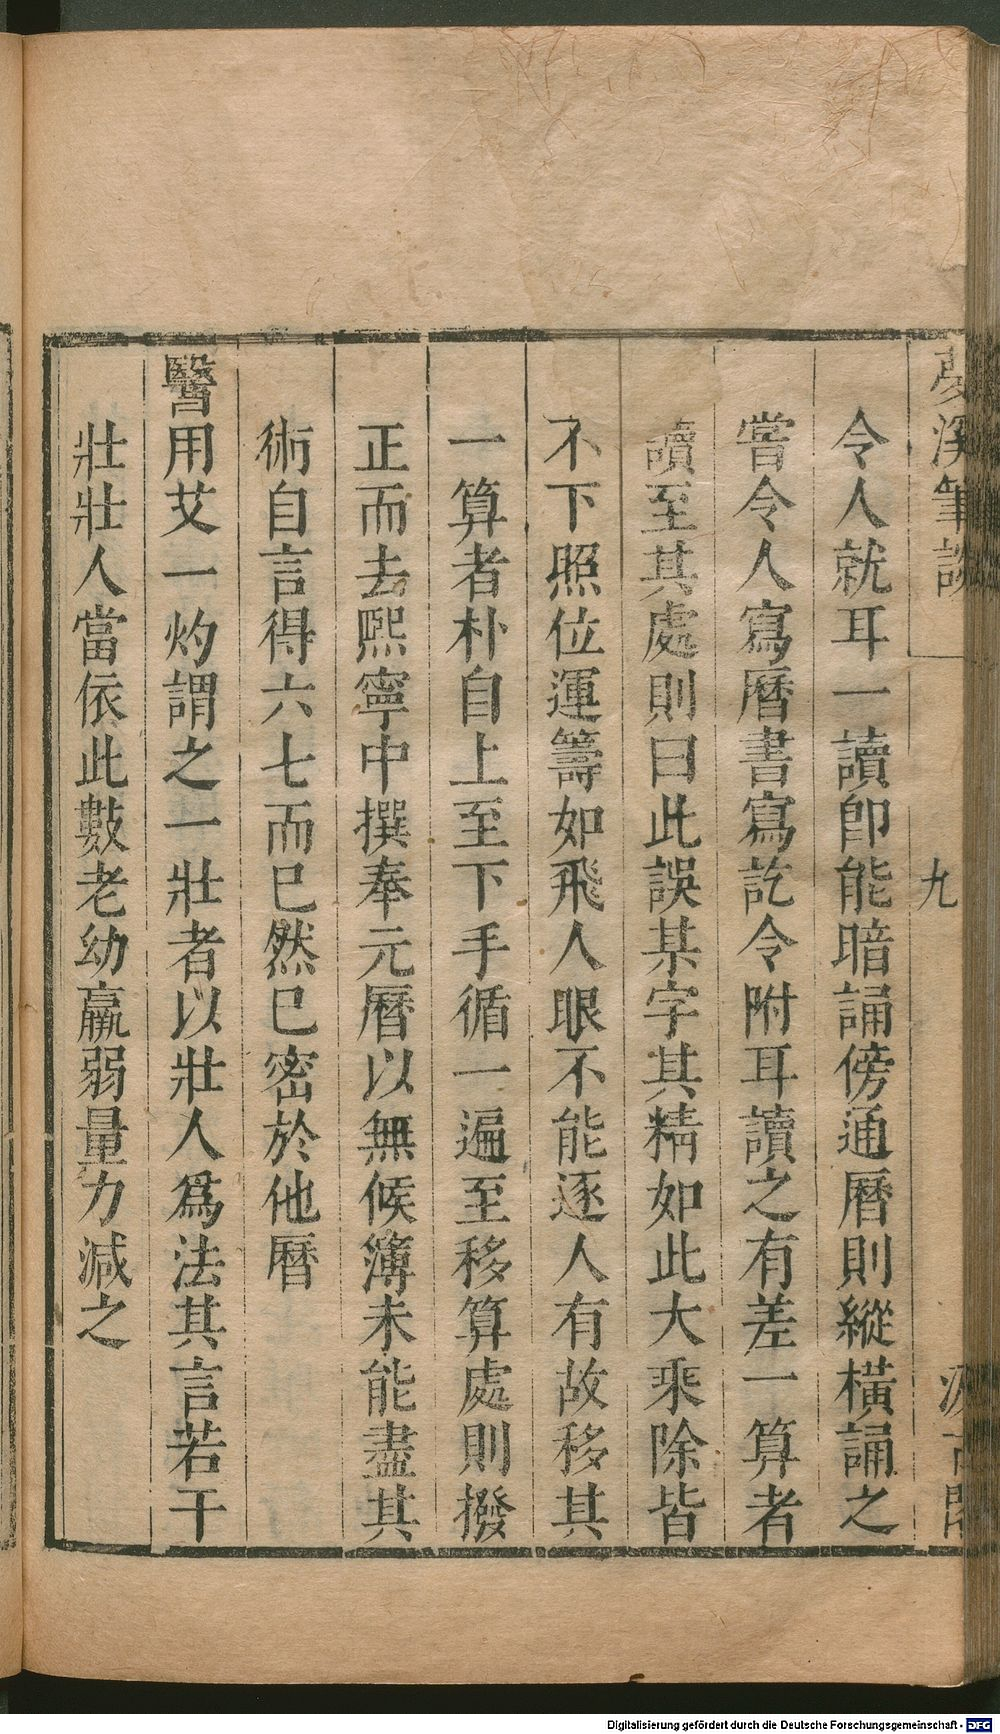 夢溪筆談
九
令人就耳一讀卽能暗誦傍通曆則縱橫誦之
嘗令人寫曆書寫訖令附耳讀之有差一算者
讀至其處則曰此誤某字其精如此大乘除皆
不下照位運籌如飛人眼不能逐人有故移其
一算者朴自上至下手循一遍至移算處則撥
正而去熈寧中撰奉元曆以無候簿未能盡其
術自言得六七而已然已密於他曆
醫用艾一灼謂之一壯者以壯人爲法其言若干
壯壯人當依此數老幼羸弱量力減之
Digitalisierung gefördert durch die Deutsche Forschungsgemeinschaft - DFG